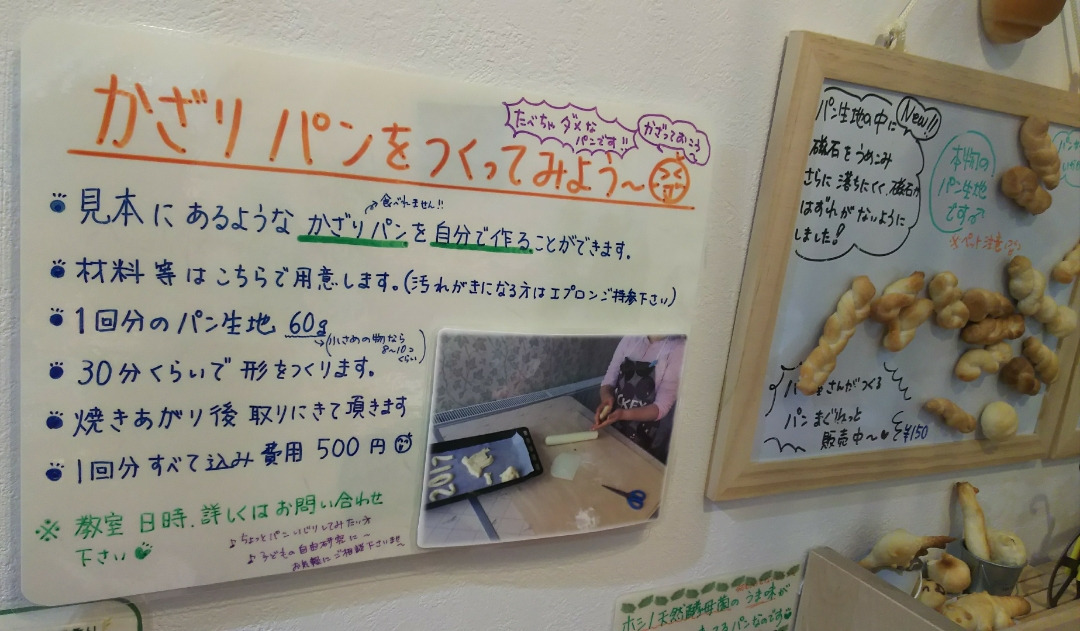 かざりパンをつくってみよう〜
たべちゃダメな
パンです!!
かざっておこう
見本にあるような かざりパンを自分で作ることができます。
食べれません!!
材料等はこちらで用意します。(汚れがきになる方はエプロンご持参下さい)
1回分のパン生地 60g
小さめの物なら
8〜10コ
くらい
30分くらいで形をつくります。
焼きあがり後 取りにきて頂きます
1回分すべて込み費用 500円
※ 教室 日時、詳しくはお問い合わせ
下さい
♪ちょっとパンいじりしてみたい方
♪子どもの自由研究に〜
お気軽にご相談下さいませ〜
2017
KEY
パン生地の中に
磁石をうめこみ
さらに落ちにくく、磁石が
はずれがないように
しました!
New!!
本物の
パン生地
です
※ペット注意
パン
パン屋さんがつくる
パンまぐねっと
販売中〜
¥150
ホシノ天然酵母菌のうま味が
パンなのです